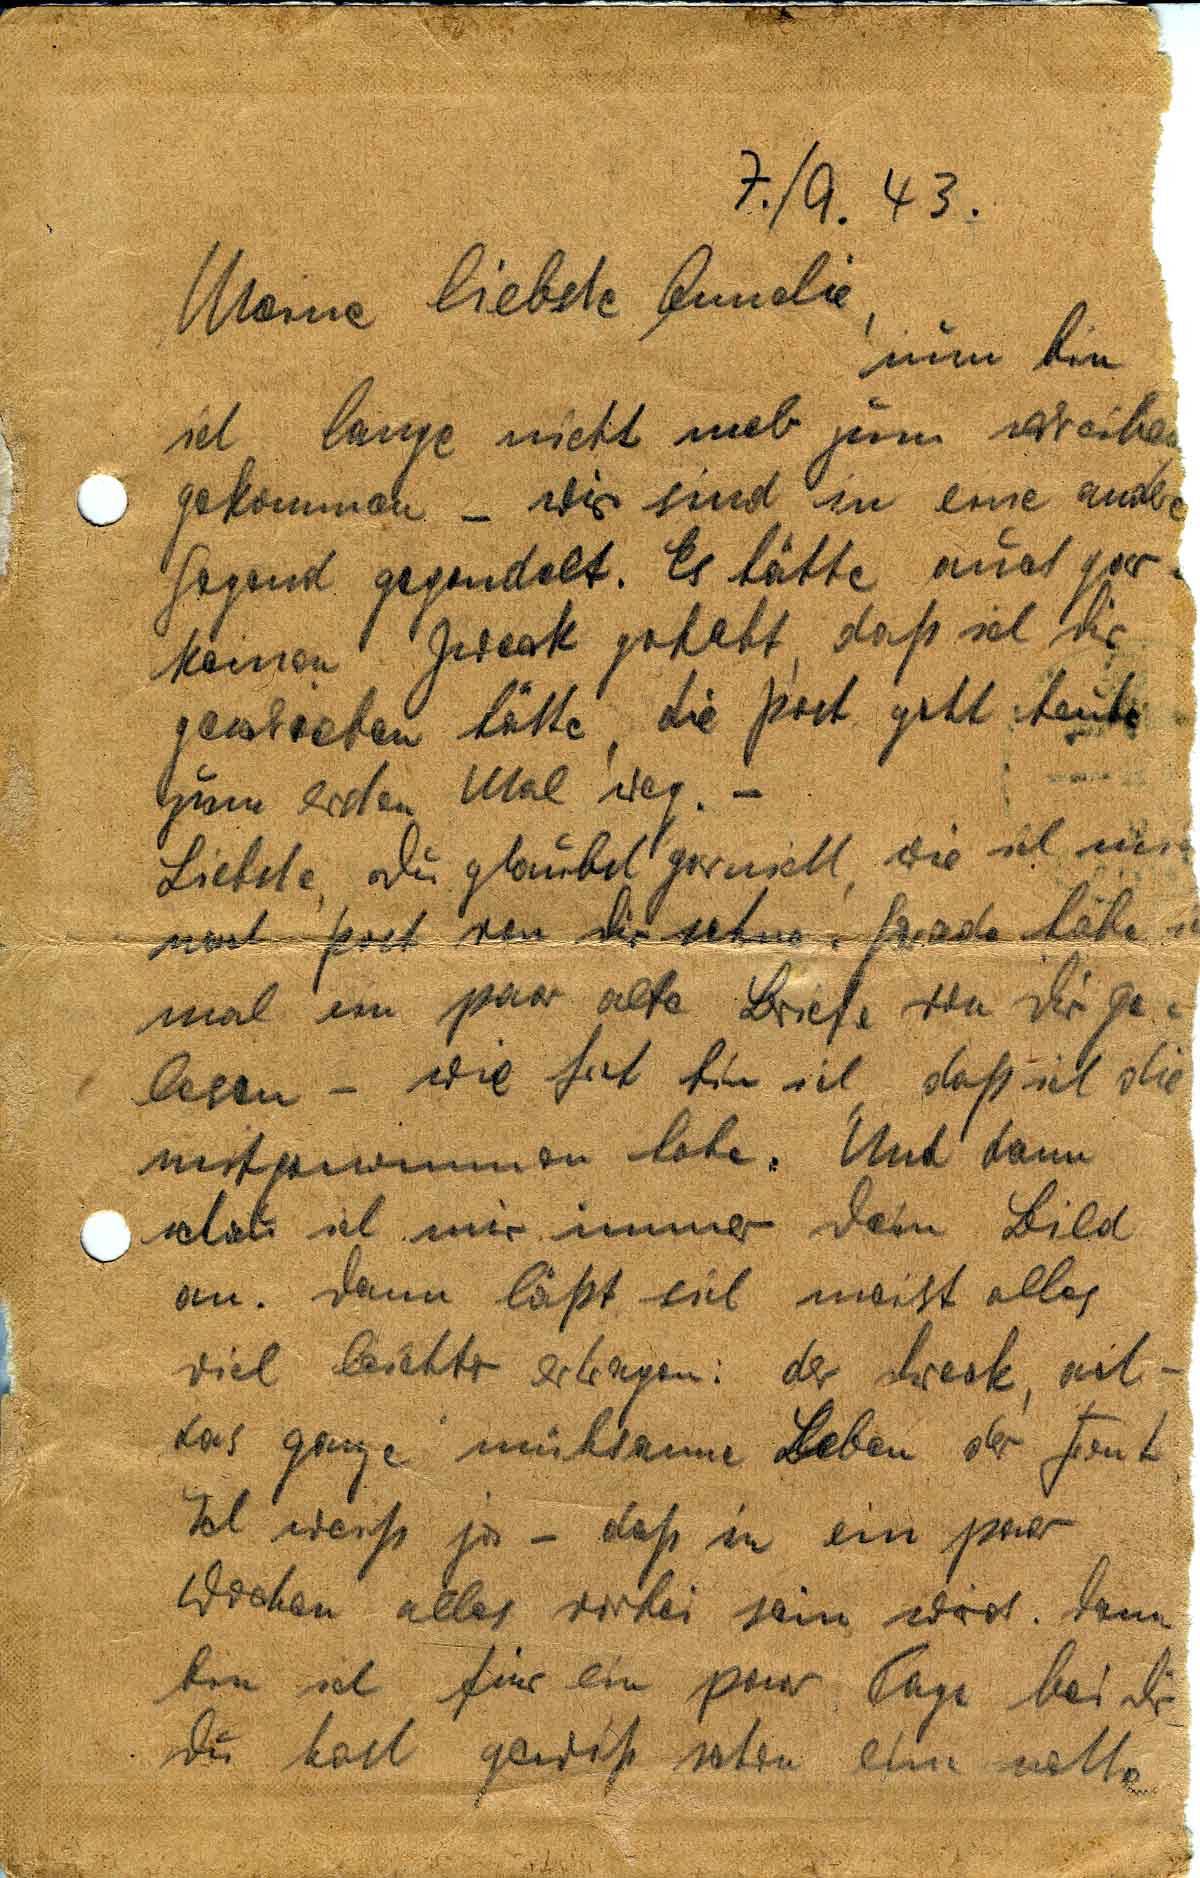 7./9. 43.
Meine liebste Annelie,
nun bin
ich lange nicht mehr zum schreiben
gekommen – wir sind in eine andere
Gegend gegondelt. Es hätte auch gar
keinen Zweck gehabt, daß ich Dir
geschrieben hätte, die Post geht heute
zum ersten Mal weg. –
Liebste, Du glaubst garnicht, wie ich
nach Post von Dir sehne. Gerade habe
mal ein paar alte Briefe von Dir ge-
lesen – wie bin ich, daß ich die
mitgenommen habe. Und dann
schau ich mir immer Dein Bild
an. Dann läßt sich meist alles
viel leichter ertragen: der Dreck,
das ganze mühsame Leben der Front
Ich weiß ja – daß in ein paar
Wochen alles vorbei sein wird. Dann
bin ich für ein paar Tage bei Dir
Du hast gewiß schon eine nette